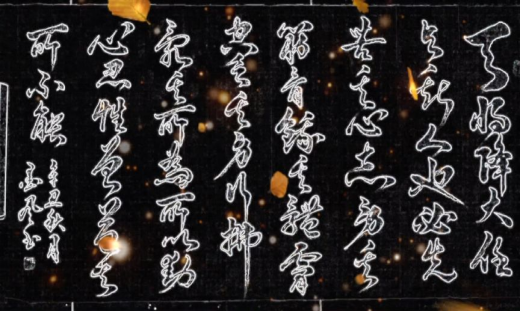 天将降大任
於斯人也必先
苦其心志劳其
筋骨餓其體膚
空乏其身行拂
亂其所為所以動
心忍性曾益其
所不能
辛丑秋月